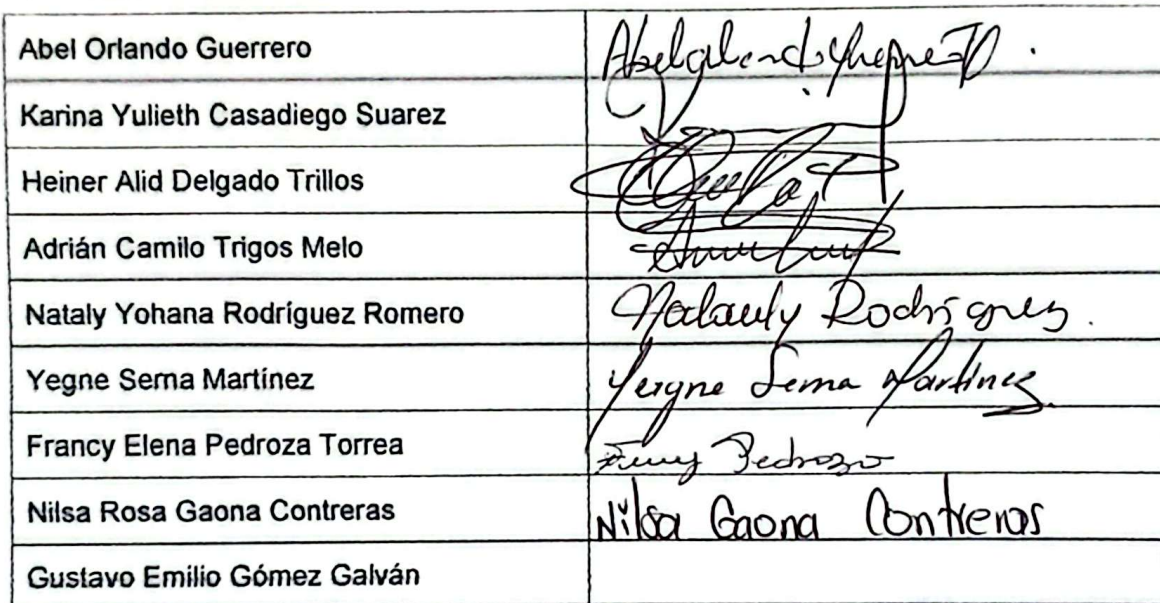 Abel Orlando Guerrero
Karina Yulieth Casadiego Suarez
Heiner Alid Delgado Trillos
Adrián Camilo Trigos Melo
Nataly Yohana Rodríguez Romero Rodríguez
Yegne Serna Martínez Yergne Serna Martínez
Francy Elena Pedroza Torrea Pedrozo
Nilsa Rosa Gaona Contreras Nilsa Gaona Contreras
Gustavo Emilio Gómez Galván